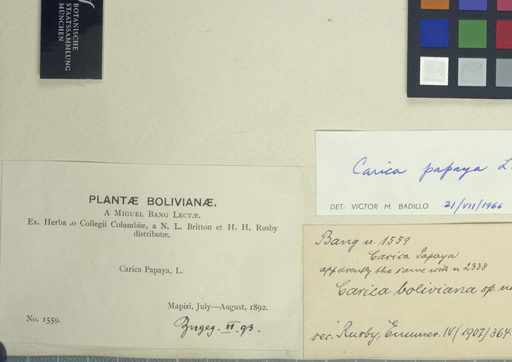 BOTANISCHE
STAATSSAMMLUNG
MÜNCHEN
PLANTÆ BOLIVIANÆ.
A MIGUEL BANG LECTÆ.
Ex. Herba io Collegii Columbiæ, a N. L. Britton et H. H. Rusby
distributæ.
Carica Papaya, L.
Mapiri, July—August, 1892.
No. 1559.
XI. 93.
Carica papaya L.
DET: VICTOR M. BADILLO 21/VII/1966
Bang n. 1559
Carica Papaya
apparently the same with n 2338
Carica boliviana sp. n
sec. Rusby, Enumer. IV (1907) 364